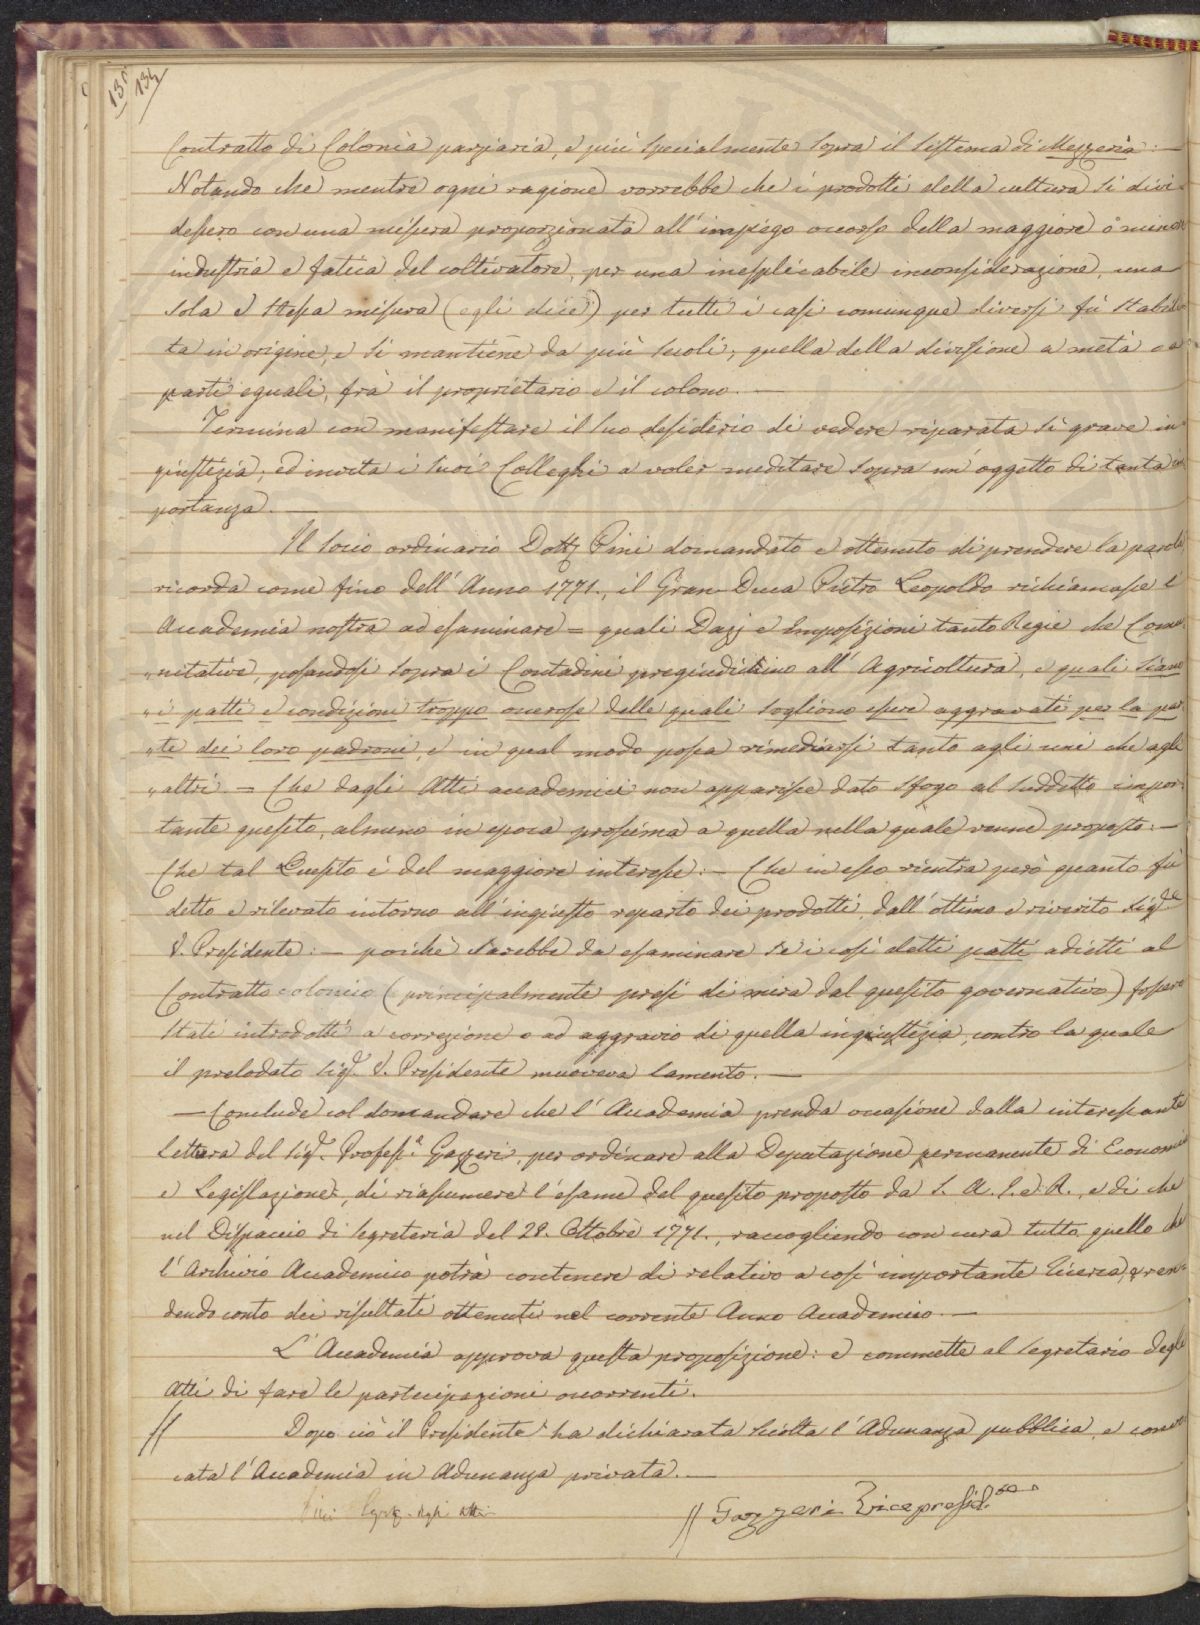 135 134
Contratto di Colonìa parziaria, e più specialmente sopra il sistema di Mezzerìa: —
Notando che mentre ogni ragione vorrebbe che i prodotti della cultura si divi-
dessero con una misura proporzionata all'impiego occorso della maggiore o minore
industria e fatica del coltivatore, per una inesplicabile inconsiderazione, una
sola e stessa misura (egli dice) per tutti i casi comunque diversi fù stabili-
ta in origine, e si mantiene da più secoli; quella della divisione a metà o a
parti eguali, frà il proprietario e il colono. —
Termina con manifestare il suo desiderio di vedere riparata sì grave in-
giustizia; ed invita i suoi Colleghi a voler meditare sopra un'oggetto di tanta im
portanza. —
Il Socio ordinario Dott. Pini domandato e ottenuto di prendere la parola,
ricorda come fino dell'Anno 1771., il Gran-Duca Pietro Leopoldo richiamasse l'
Accademia nostra ad esaminare = quali Dazj e Imposizioni tanto Regie che Comu-
„nitative, posandosi sopra i Contadini pregiudichino all'Agricoltura, e quali siano
„i patti e condizioni troppo onerose delle quali sogliono essere aggravati per la par-
„te dei loro padroni, e in qual modo possa rimediarsi tanto agli uni che agli
„altri. = Che dagli Atti accademici non apparisce dato sfogo al suddetto impor-
tante quesito, almeno in epoca prossima a quella nella quale venne proposto: —
Che tal Quesito è del maggiore interesse: — Che in esso rientra però quanto fù
detto e rilevato intorno all'ingiusto reparto dei prodotti, dall'ottimo e riverito Sigre
V. Presidente: — poichè sarebbe da esaminare se i così detti patti adietti al
Contratto colonico (principalmente presi di mira dal quesito governativo) fossero
stati introdotti a correzione o ad aggravio di quella ingiustizia, contro la quale
il prelodato Sigr. V. Presidente muoveva lamento. —
— Conclude col domandare che l'Accademia prenda occasione dalla interessante
Lettura del Sigr. Professr. Gazzeri, per ordinare alla Deputazione permanente di Economia
e Legislazione, di riassumere l'esame del quesito proposto da S. A. I. e R., e di che
nel Dispaccio di Segreteria del 28. Ottobre 1771., raccogliendo con cura tutto quello che
l'Archivio Accademico potrà contenere di relativo a così importante ricerca, e ren-
dendo conto dei risultati ottenuti nel corrente Anno Accademico. —
L'Accademia approva questa proposizione: e commette al Segretario degli
Atti di fare le partecipazioni occorrenti.
// Dopo ciò il Presidente ha dichiarata sciolta l'Adunanza pubblica, e convo-
cata l'Accademia in Adunanza privata. —
Segret. degli Atti
// Gazzeri Vicepresid.